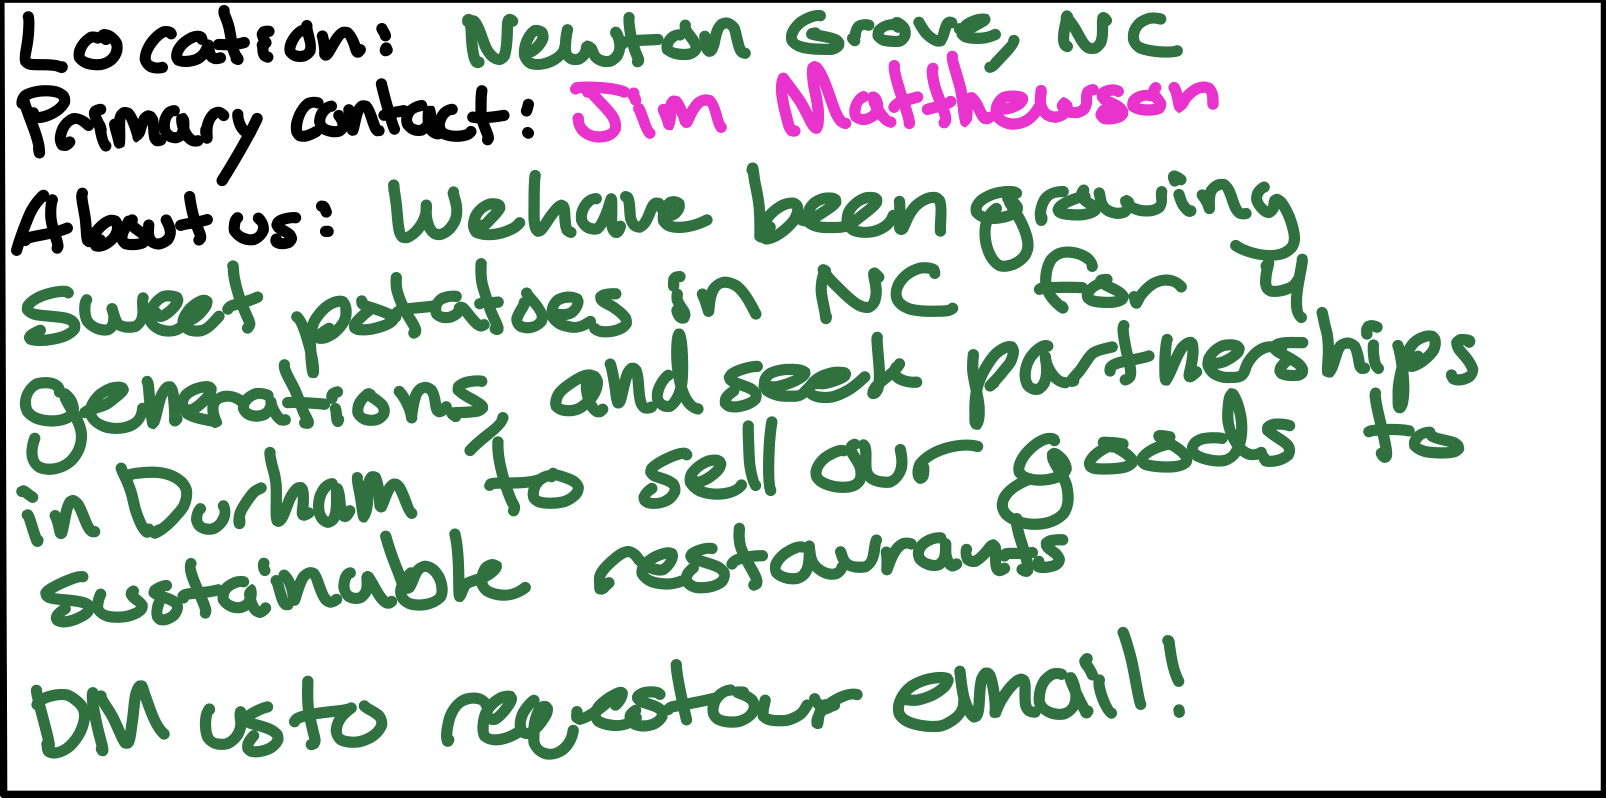 Location: Newton Grove, NC
Primary contact: Jim Matthewson
About us: We have been growing
sweet potatoes in NC for 4
generations, and seek partnerships
in Durham to sell our goods to
sustainable restaurants
DM us to request our email!